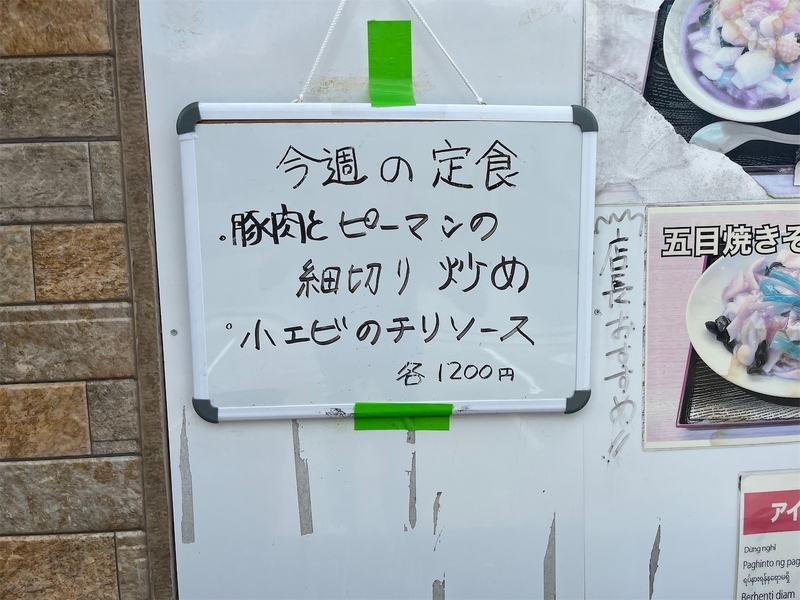 今週の定食
。豚肉とピーマンの
細切り炒め
。小エビのチリソース
各1200円
店長おすすめ!!
五目焼きそ
アイ
Dừng nghỉ
Paghinto ng pag
Berhenti diam